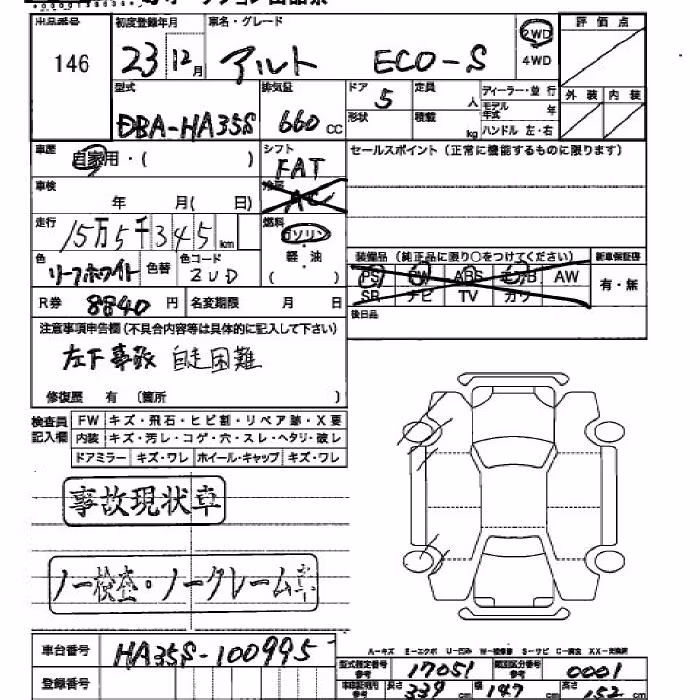 出品番号 初度登録年月 車名・グレード 評価点
146 23年12月 アルト ECO-S 2WD
4WD
型式 排気量 ドア 5 定員 人 ディーラー・並行 外装 内装
DBA-HA35S 660cc 形状 積載 kg モデル年式 年
ハンドル 左・右
車歴 自家用・( ) シフト FAT セールスポイント(正常に機能するものに限ります)
車検 年 月( 日) 冷房 AC
走行 15万5千345km 燃料 ガソリン
軽・油
( )
色 リーフホワイト 色替 色コード ZUD
装備品(純正品に限り○をつけてください) 新車保証書
PS PW ABS エアB AW 有・無
SR ナビ TV カワ
R券 8840円 名変期限 月 日 後日品
注意事項申告欄(不具合内容等は具体的に記入して下さい)
左下事故 自走困難
修復歴 有 〔箇所 〕
検査員記入欄 FW キズ・飛石・ヒビ割・リペア跡・X要
内装 キズ・汚レ・コゲ・穴・スレ・ヘタリ・破レ
ドアミラー キズ・ワレ ホイール・キャップ キズ・ワレ
事故現状車
ノー検査・ノークレーム車
A-キズ E-エクボ U-凹み W-補修跡 S-サビ C-腐食 XX-交換済
車台番号 HA35S-100995
登録番号
型式指定番号 参考 17051 類別区分番号 参考 0001
車庫証明用 参考 長さ 339cm 幅 147cm 高さ 152cm